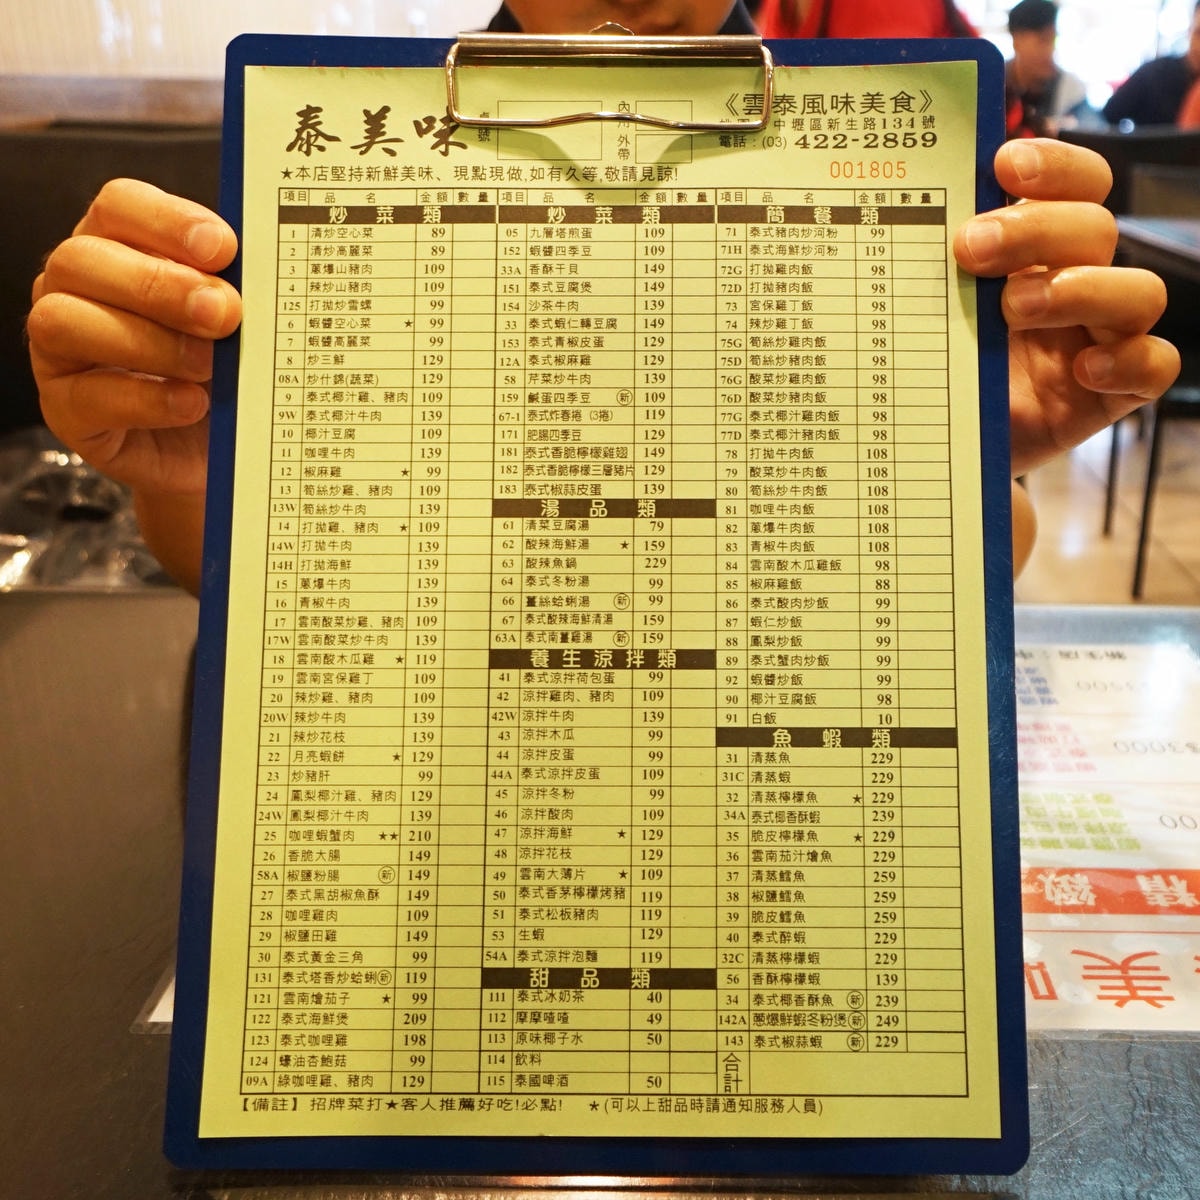 泰美味
桌號
內用
外帶
《雲泰風味美食》
中壢區新生路134號
電話:(03) 422-2859
★本店堅持新鮮美味、現點現做,如有久等,敬請見諒!
001805
項目 品名 金額 數量
炒菜類
1 清炒空心菜 89
2 清炒高麗菜 89
3 蔥爆山豬肉 109
4 辣炒山豬肉 109
125 打拋炒雪螺 99
6 蝦醬空心菜 ★ 99
7 蝦醬高麗菜 99
8 炒三鮮 129
08A 炒什錦(蔬菜) 129
9 泰式椰汁雞、豬肉 109
9W 泰式椰汁牛肉 139
10 椰汁豆腐 109
11 咖哩牛肉 139
12 椒麻雞 ★ 99
13 筍絲炒雞、豬肉 109
13W 筍絲炒牛肉 139
14 打拋雞、豬肉 ★ 109
14W 打拋牛肉 139
14H 打拋海鮮 139
15 蔥爆牛肉 139
16 青椒牛肉 139
17 雲南酸菜炒雞、豬肉 109
17W 雲南酸菜炒牛肉 139
18 雲南酸木瓜雞 ★ 119
19 雲南宮保雞丁 109
20 辣炒雞、豬肉 109
20W 辣炒牛肉 139
21 辣炒花枝 139
22 月亮蝦餅 ★ 129
23 炒豬肝 99
24 鳳梨椰汁雞、豬肉 129
24W 鳳梨椰汁牛肉 139
25 咖哩蝦蟹肉 ★★ 210
26 香脆大腸 149
58A 椒鹽粉腸 新 149
27 泰式黑胡椒魚酥 149
28 咖哩雞肉 109
29 椒鹽田雞 149
30 泰式黃金三角 99
131 泰式塔香炒蛤蜊 新 119
121 雲南燴茄子 ★ 99
122 泰式海鮮煲 209
123 泰式咖哩雞 198
124 蠔油杏鮑菇 99
09A 綠咖哩雞、豬肉 129
項目 品名 金額 數量
炒菜類
05 九層塔煎蛋 109
152 蝦醬四季豆 109
33A 香酥干貝 149
151 泰式豆腐煲 149
154 沙茶牛肉 139
33 泰式蝦仁轉豆腐 149
153 泰式青椒皮蛋 129
12A 泰式椒麻雞 129
58 芹菜炒牛肉 139
159 鹹蛋四季豆 新 109
67-1 泰式炸春捲 (3捲) 119
171 肥腸四季豆 129
181 泰式香脆檸檬雞翅 149
182 泰式香脆檸檬三層豬片 129
183 泰式椒蒜皮蛋 139
湯品類
61 清菜豆腐湯 79
62 酸辣海鮮湯 ★ 159
63 酸辣魚鍋 229
64 泰式冬粉湯 99
66 薑絲蛤蜊湯 新 99
67 泰式酸辣海鮮清湯 159
63A 泰式南薑雞湯 新 159
養生涼拌類
41 泰式涼拌荷包蛋 99
42 涼拌雞肉、豬肉 109
42W 涼拌牛肉 139
43 涼拌木瓜 99
44 涼拌皮蛋 99
44A 泰式涼拌皮蛋 109
45 涼拌冬粉 99
46 涼拌酸肉 109
47 涼拌海鮮 ★ 129
48 涼拌花枝 129
49 雲南大薄片 ★ 109
50 泰式香茅檸檬烤豬 119
51 泰式松板豬肉 119
53 生蝦 129
54A 泰式涼拌泡麵 119
甜品類
111 泰式冰奶茶 40
112 摩摩喳喳 49
113 原味椰子水 50
114 飲料
115 泰國啤酒 50
項目 品名 金額 數量
簡餐類
71 泰式豬肉炒河粉 99
71H 泰式海鮮炒河粉 119
72G 打拋雞肉飯 98
72D 打拋豬肉飯 98
73 宮保雞丁飯 98
74 辣炒雞丁飯 98
75G 筍絲炒雞肉飯 98
75D 筍絲炒豬肉飯 98
76G 酸菜炒雞肉飯 98
76D 酸菜炒豬肉飯 98
77G 泰式椰汁雞肉飯 98
77D 泰式椰汁豬肉飯 98
78 打拋牛肉飯 108
79 酸菜炒牛肉飯 108
80 筍絲炒牛肉飯 108
81 咖哩牛肉飯 108
82 蔥爆牛肉飯 108
83 青椒牛肉飯 108
84 雲南酸木瓜雞飯 98
85 椒麻雞飯 88
86 泰式酸肉炒飯 99
87 蝦仁炒飯 99
88 鳳梨炒飯 99
89 泰式蟹肉炒飯 99
92 蝦醬炒飯 99
90 椰汁豆腐飯 98
91 白飯 10
魚蝦類
31 清蒸魚 229
31C 清蒸蝦 229
32 清蒸檸檬魚 ★ 229
34A 泰式椰香酥蝦 239
35 脆皮檸檬魚 ★ 229
36 雲南茄汁燴魚 229
37 清蒸鱈魚 259
38 椒鹽鱈魚 259
39 脆皮鱈魚 259
40 泰式醉蝦 229
32C 清蒸檸檬蝦 229
56 香酥檸檬蝦 139
34 泰式椰香酥魚 新 239
142A 蔥爆鮮蝦冬粉煲 新 249
143 泰式椒蒜蝦 新 229
合計
【備註】招牌菜打★客人推薦好吃!必點! *(可以上甜品時請通知服務人員)